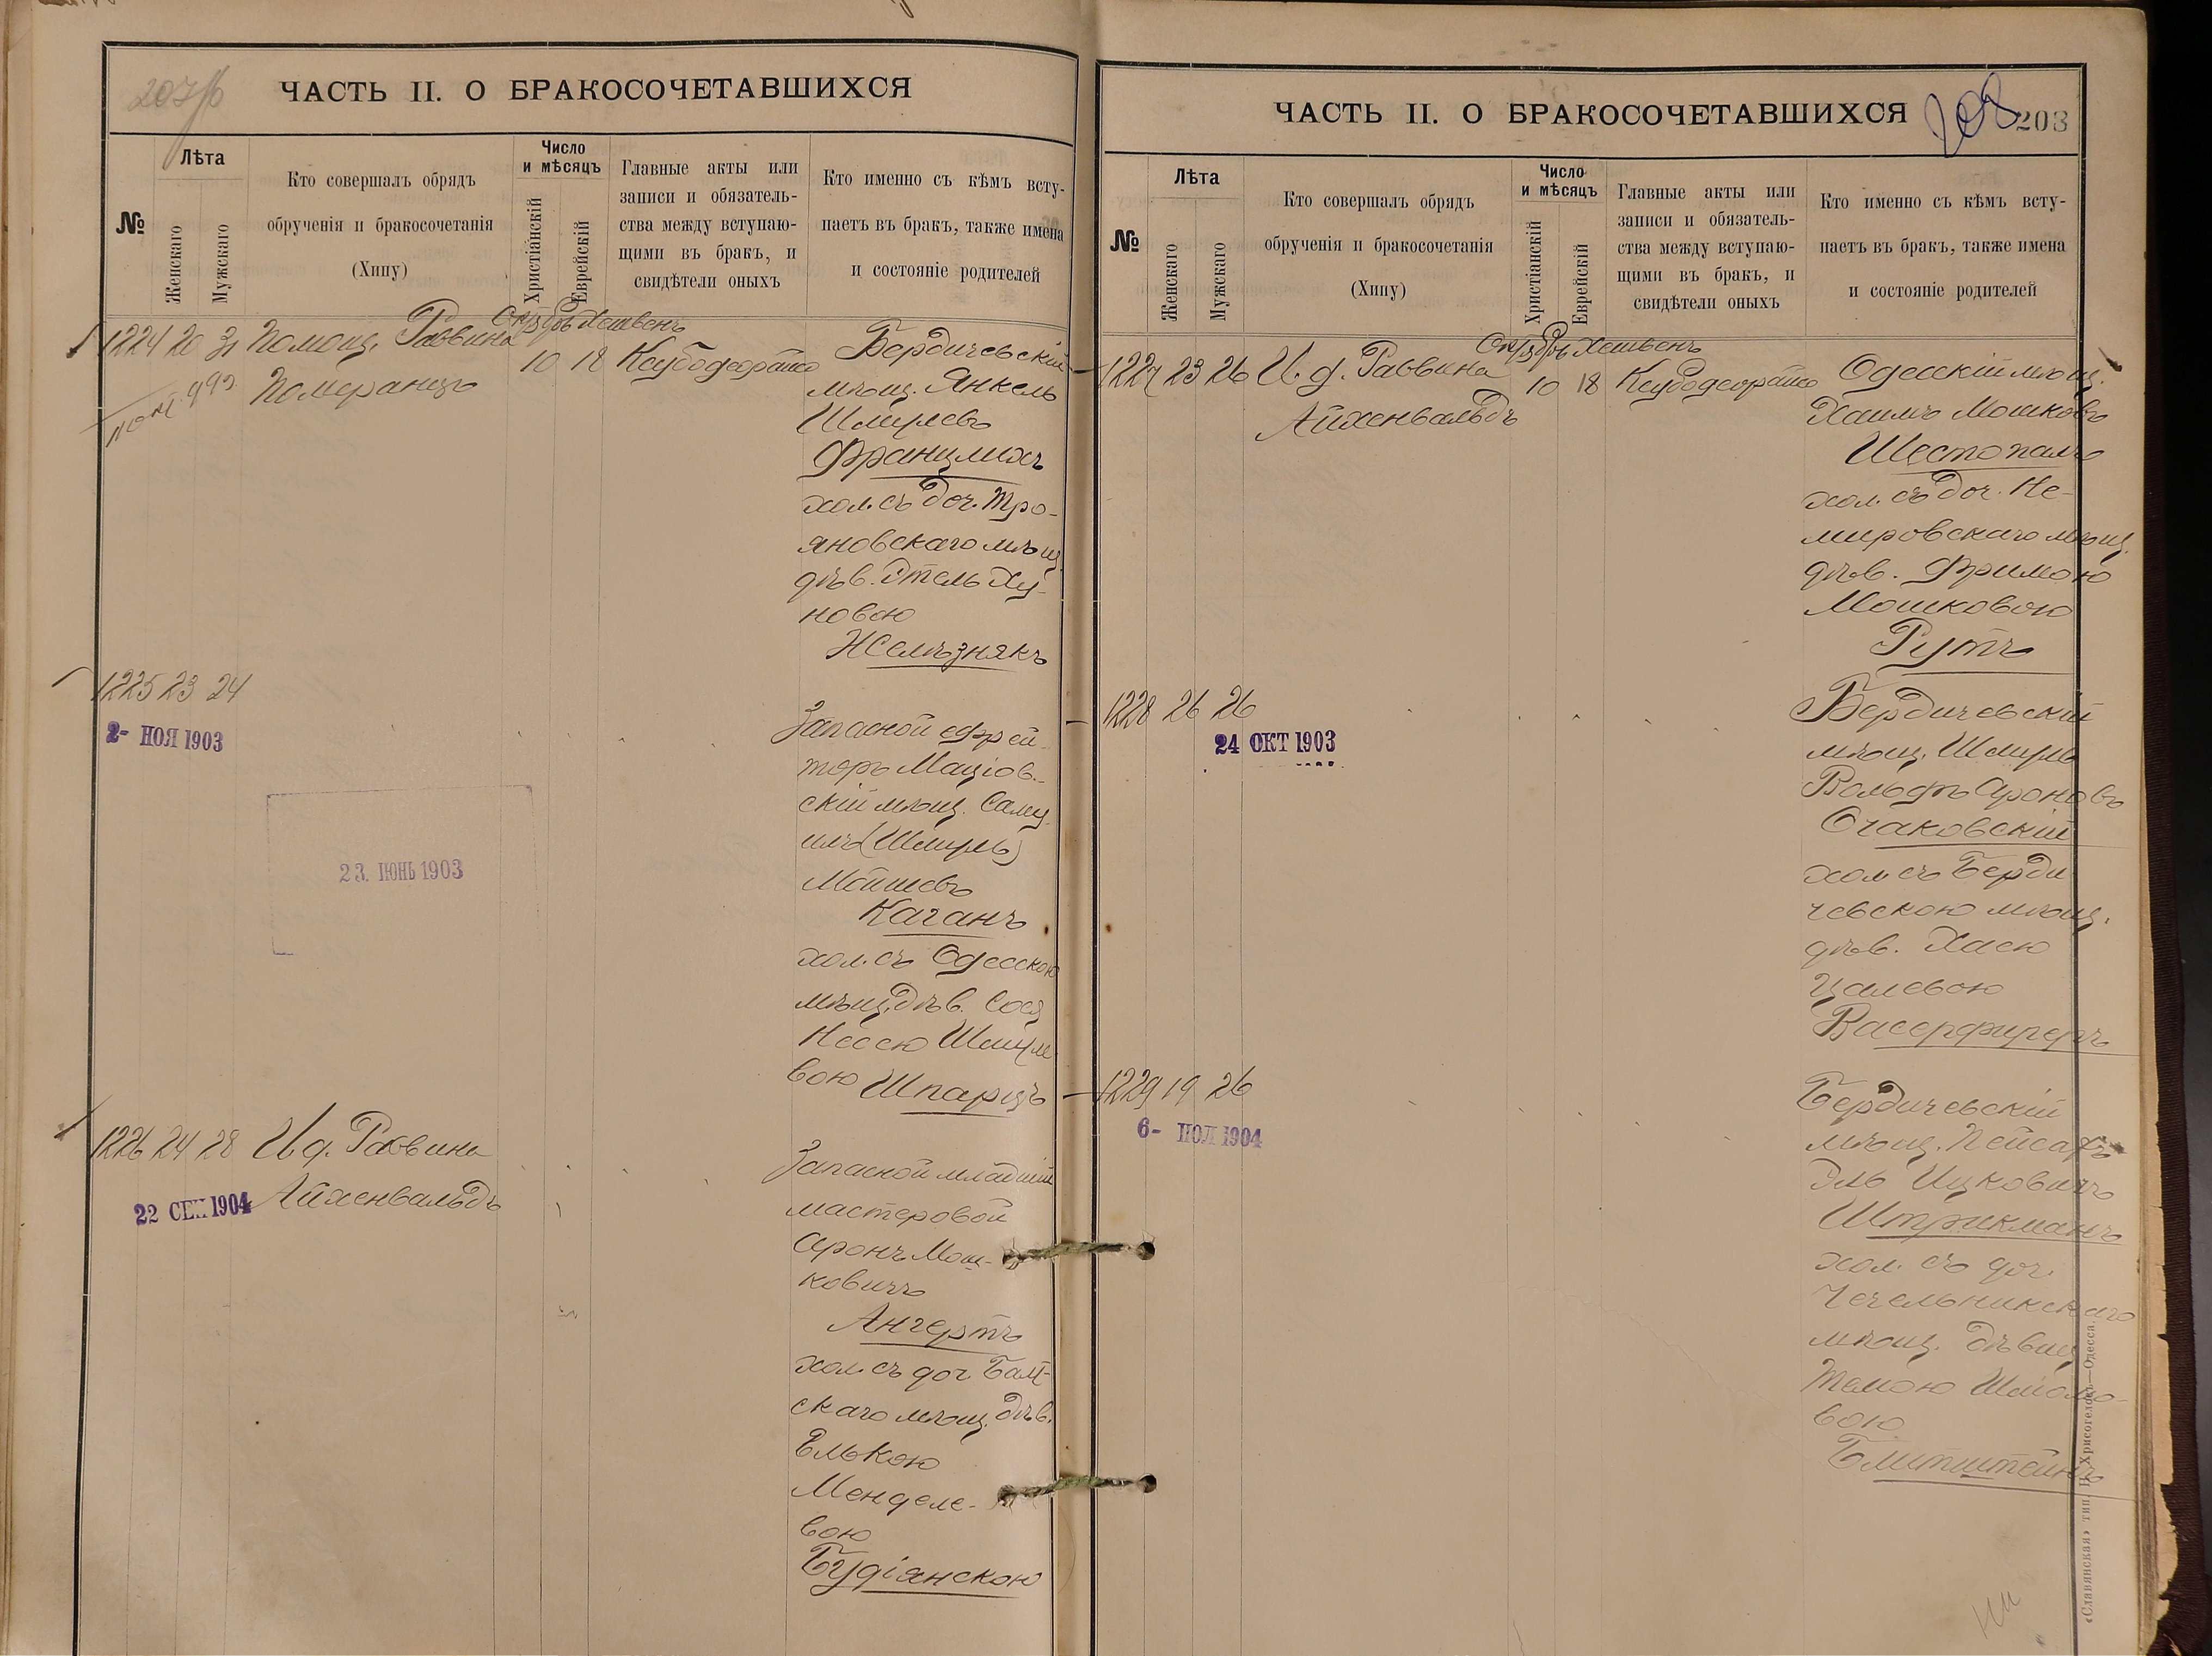 ЧАСТЬ II. О БРАКОСОЧЕТАВШИХСЯ
№
Лѣта
Женскаго
Мужскаго
Кто совершалъ обрядъ
обрученія и бракосочетанія
(Хипу)
Число
и мѣсяцъ
Христіанскій
Еврейскій
Главные акты или
записи и обязатель-
ства между вступаю-
щими въ бракъ, и
свидѣтели оныхъ
Кто именно съ кѣмъ всту-
паетъ въ бракъ, также имена
и состояніе родителей
1224 20 31 Помощ. Раввина
Померанцъ
Октябрь Хешвенъ
10 18
Бердичевскій
мѣщ. Янкель
Шмулевъ
Францмихъ
хол. съ доч. Тро-
яновскаго мѣщ.
дѣв. Этель Ху-
новою
Желѣзнякъ
1225 23 24
2- НОЯ 1903
23. ІЮНЬ 1903
Запасной ефрей-
торъ Маціов-
скій мѣщ. Саму-
илъ (Шмуль)
Мойшевъ
Каганъ
хол. съ Одесскою
мѣщ. дѣв. Сося
Нессею Шмуле-
вою Шпарцъ
1226 24 28 И. д. Раввина
Айхенвальдъ
22 СЕН 1904
Запасной младшій
мастеровой
Аронъ Мош-
ковичъ
Ангертъ
хол. съ доч. Балт-
скаго мѣщ. дѣв.
Елькою
Менделе-
вою
Будіянскою
ЧАСТЬ II. О БРАКОСОЧЕТАВШИХСЯ
208
203
№
Лѣта
Женскаго
Мужскаго
Кто совершалъ обрядъ
обрученія и бракосочетанія
(Хипу)
Число
и мѣсяцъ
Христіанскій
Еврейскій
Главные акты или
записи и обязатель-
ства между вступаю-
щими въ бракъ, и
свидѣтели оныхъ
Кто именно съ кѣмъ всту-
паетъ въ бракъ, также имена
и состояніе родителей
1227 23 26 И. д. Раввина
Айхенвальдъ
Октябрь Хешвенъ
10 18
Одесскій мѣщ.
Хаимъ Мошковъ
Шестопалъ
хол. съ доч. Не-
мировскаго мѣщ.
дѣв. Фримою
Мошковою
Рутъ
1228 26 26
24 ОКТ 1903
Бердичевскій
мѣщ. Шмуль
Вольфъ Ароновъ
Очаковскій
хол. съ Берди
чевскою мѣщ.
дѣв. Хаею
Цалевою
Васерфиреръ
1229 19 26
6- ІЮЛ 1904
Бердичевскій
мѣщ. Пейсахъ
Эль Ицковичъ
Штрикманъ
хол. съ доч.
Чечельникскаго
мѣщ. дѣвиц.
Темою Шмомо-
вою
Блитштейнъ
«Славянская» тип. Н. Хрисогелосъ—Одесса